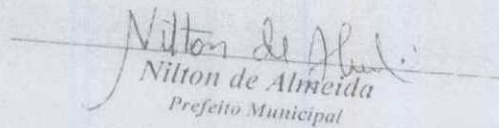 Nilton de Almeida
Nilton de Almeida
Prefeito Municipal